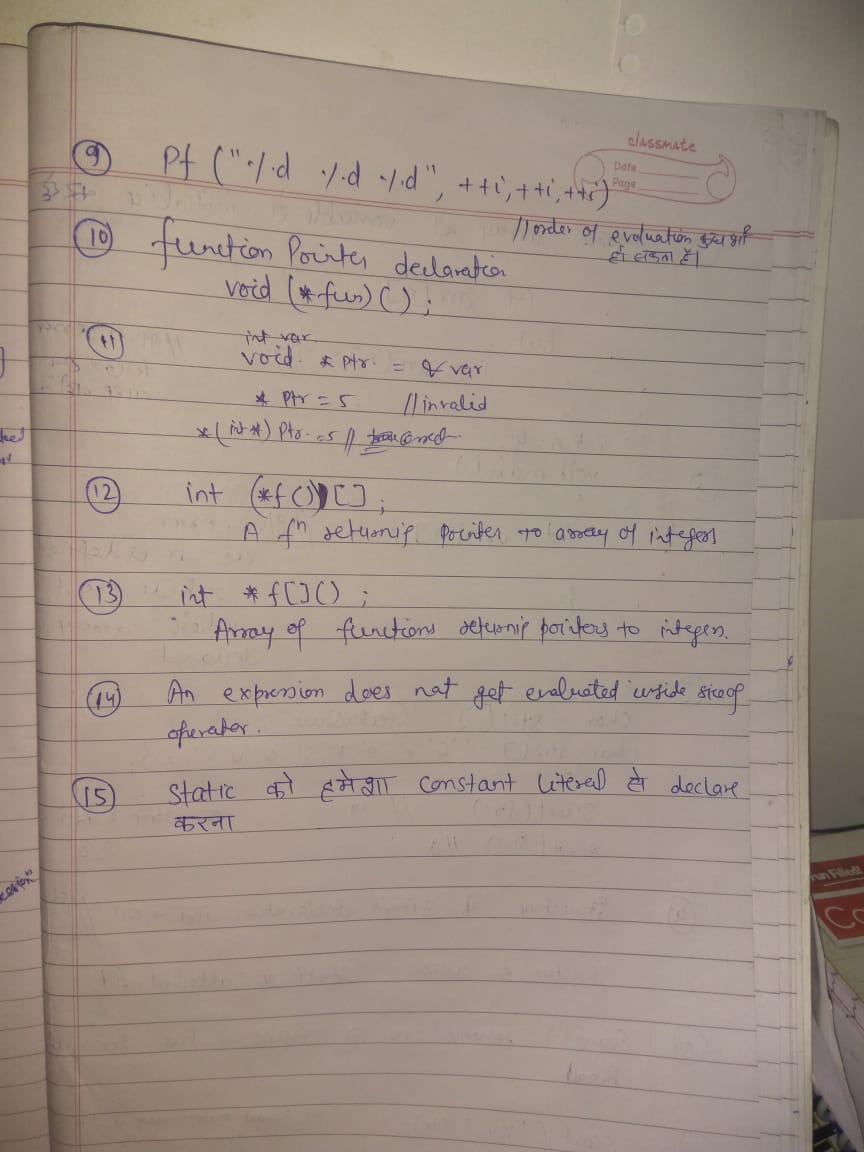 classmate
Date
Page
9 Pf ("%d %d %d", ++i, ++i, ++i)
//order of evaluation कुछ भी
हो सकता है।
10 function Pointer declaration
void (*fun)();
11 int var
void *ptr = &var
*ptr = 5 //invalid
*(int*) ptr = 5 //
12 int (*f())[];
A fⁿ returnig pointer to array of integers
13 int *f[]();
Array of functions returnig pointers to integers.
14 An expression does not get evaluated inside sizeof
operator.
15 Static को हमेशा constant literal से declare
करना